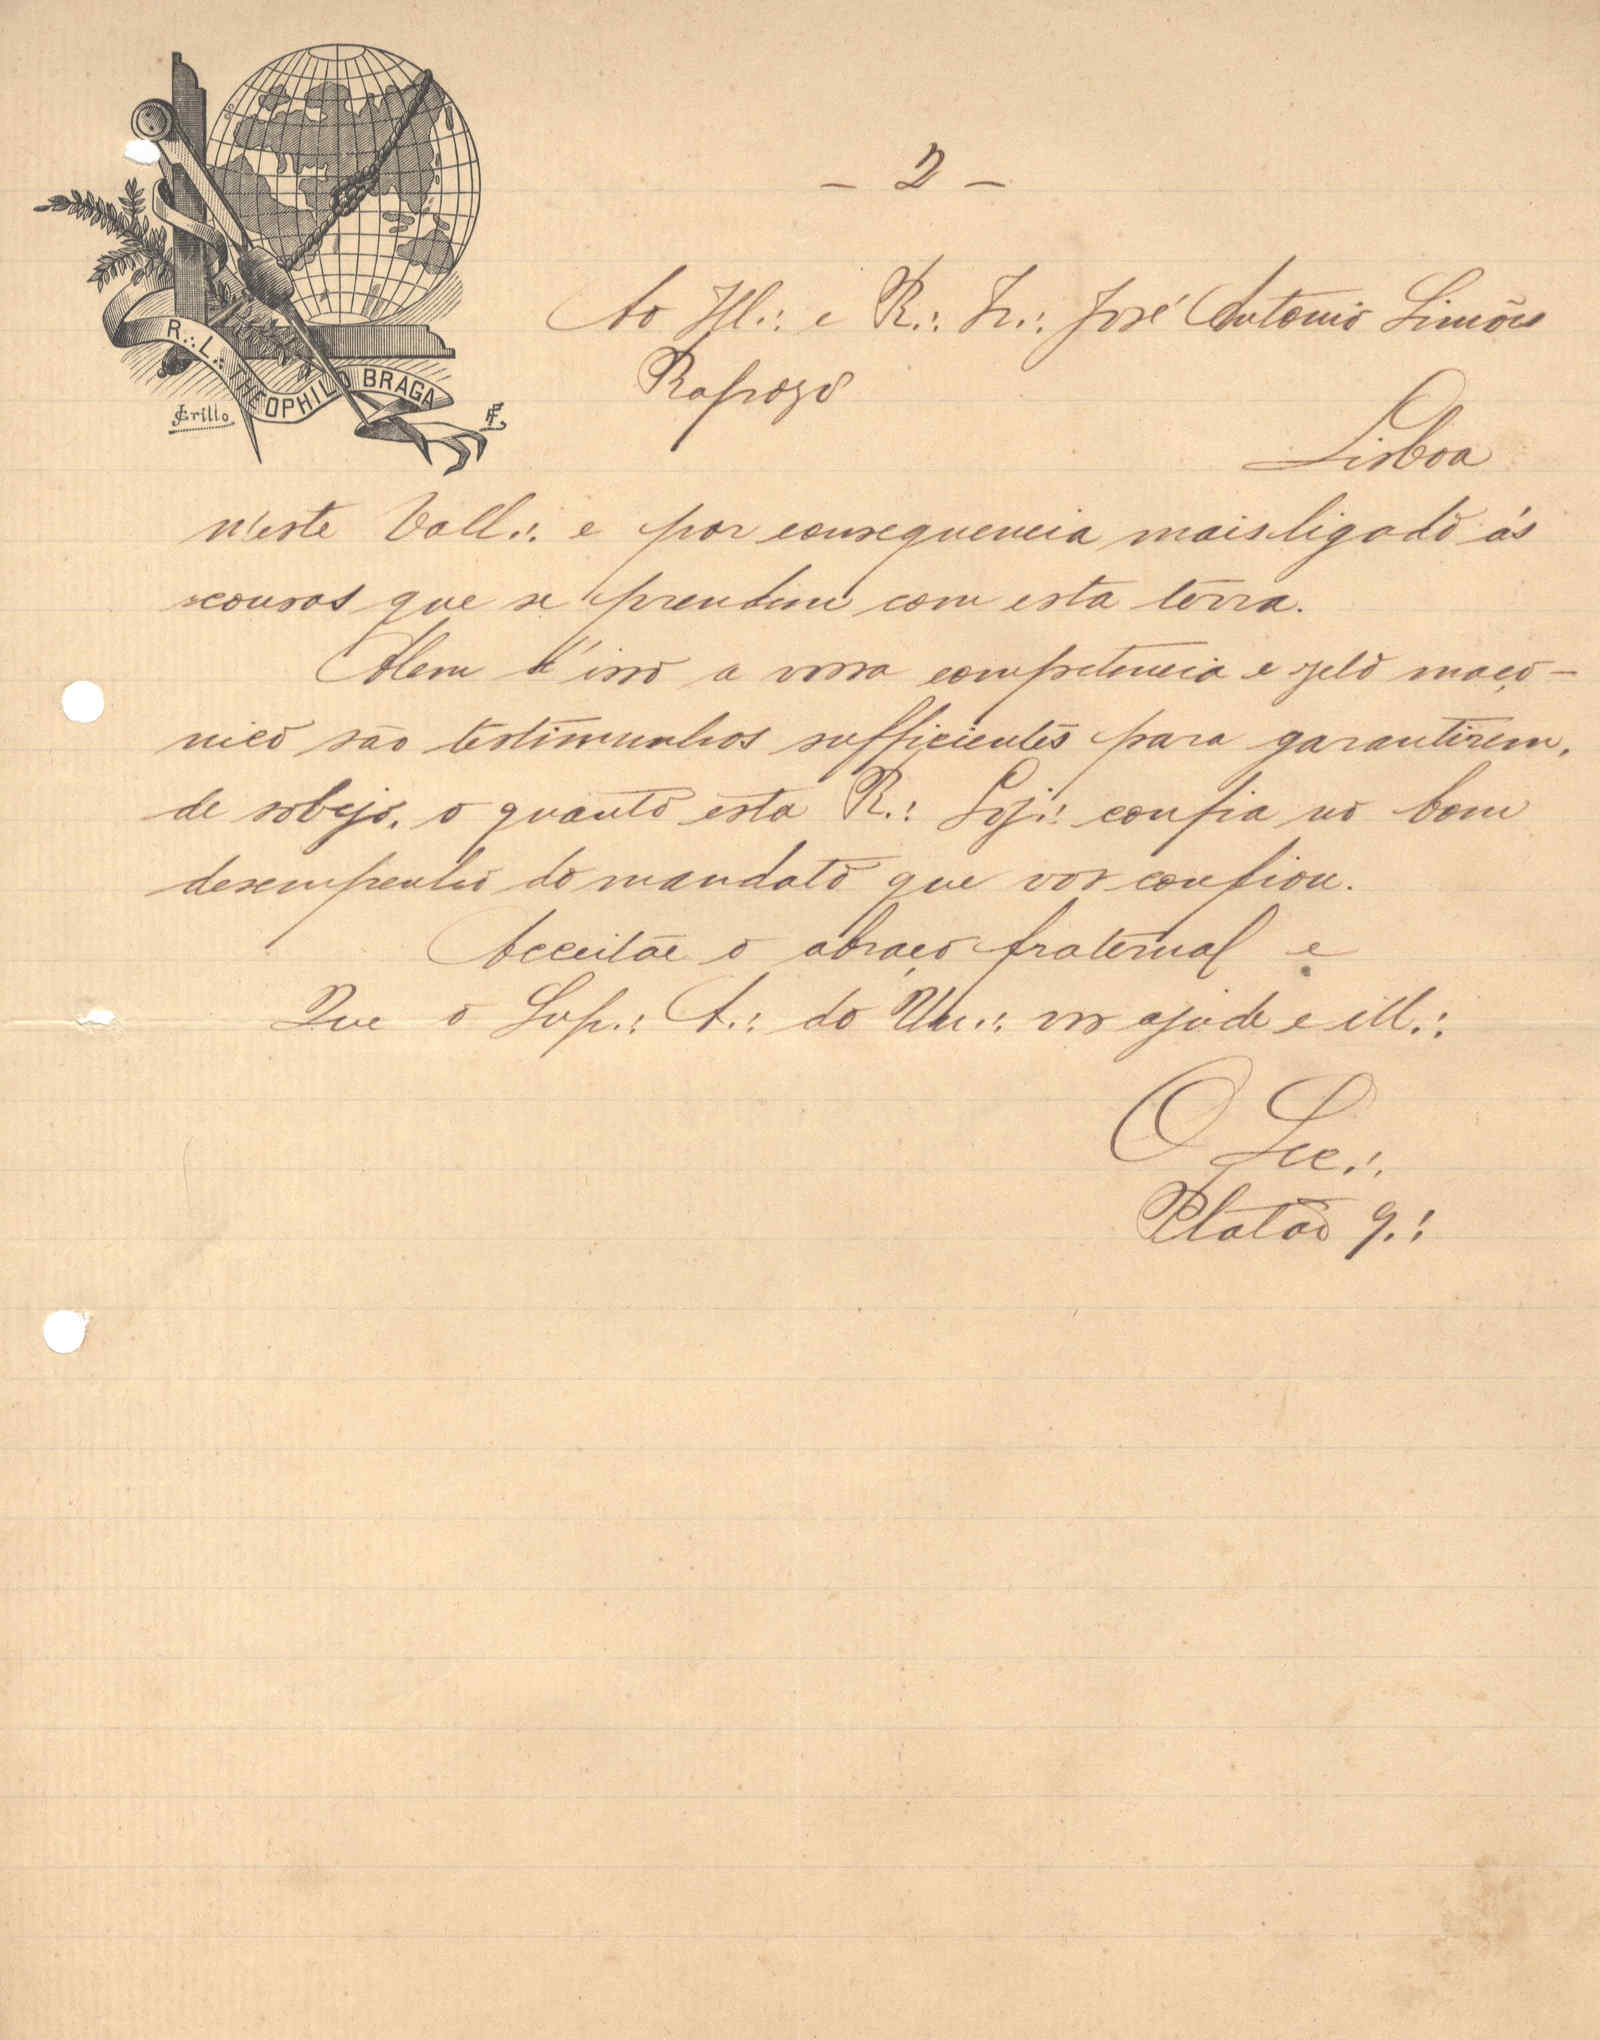 R∴ L∴ THEOPHILO BRAGA
Grillo
- 2 -
Ao Ill∴ e R∴ Ir∴ José Antonio Simões
Rapozo
Lisboa
n'este Vall∴ e por consequencia mais ligado ás
cousas que se prendem com esta terra.
Alem d'isso a vossa competencia e zelo maço-
nico são testimunhos sufficientes para garantirem,
de sobejo, o quanto esta R∴ Loj∴ confia no bom
desempenho do mandato que vos confiou.
Acceitae o abraço fraternal e
Que o Sup∴ A∴ do Un∴ vos ajude e ill∴
O Sec∴
Platão g∴